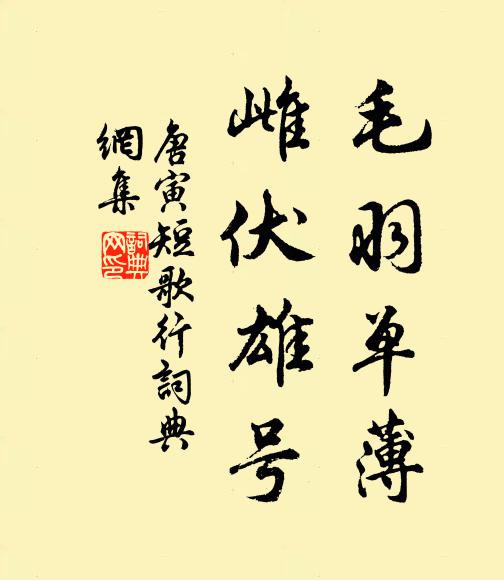 毛羽单薄
雌伏雄号
唐寅短歌行词典
網集
詞典
网印